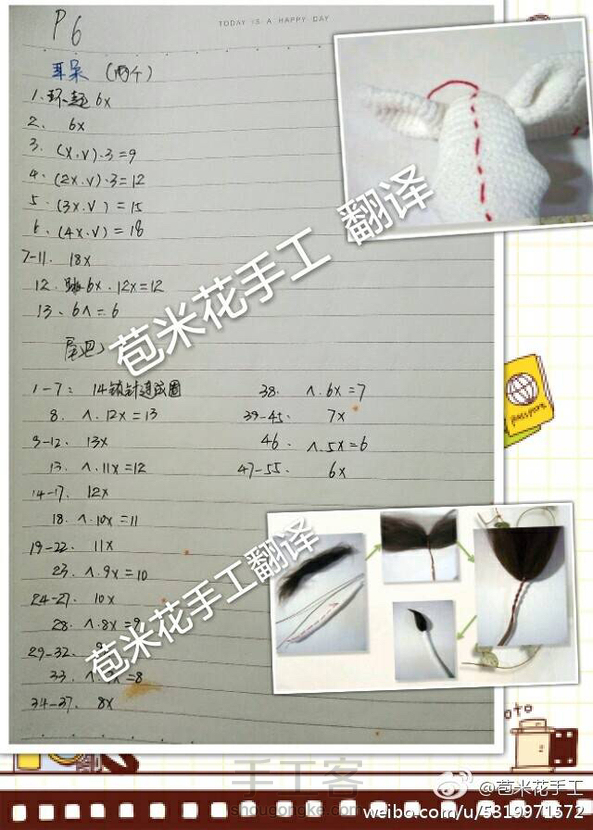 P6
TODAY IS A HAPPY DAY
耳朵 (两个)
1. 环起 6x
2. 6x
3. (x.v).3=9
4. (2x.v).3=12
5. (3x.v)=15
6. (4x.v)=18
7-11. 18x
12. 跳6x.12x=12
13. 6∧=6
尾巴
1-7: 14锁针连成圈
8. ∧.12x=13
9-12. 13x
13. ∧.11x=12
14-17. 12x
18. ∧.10x=11
19-22. 11x
23. ∧.9x=10
24-27. 10x
28. ∧.8x=9
29-32.
33. ∧. x=8
34-37. 8x
38. ∧.6x=7
39-45. 7x
46. ∧.5x=6
47-55. 6x
苞米花手工 翻译
苞米花手工翻译
passport
oto
手工客
shougongke.com
@苞米花手工
weibo.com/u/5319971572